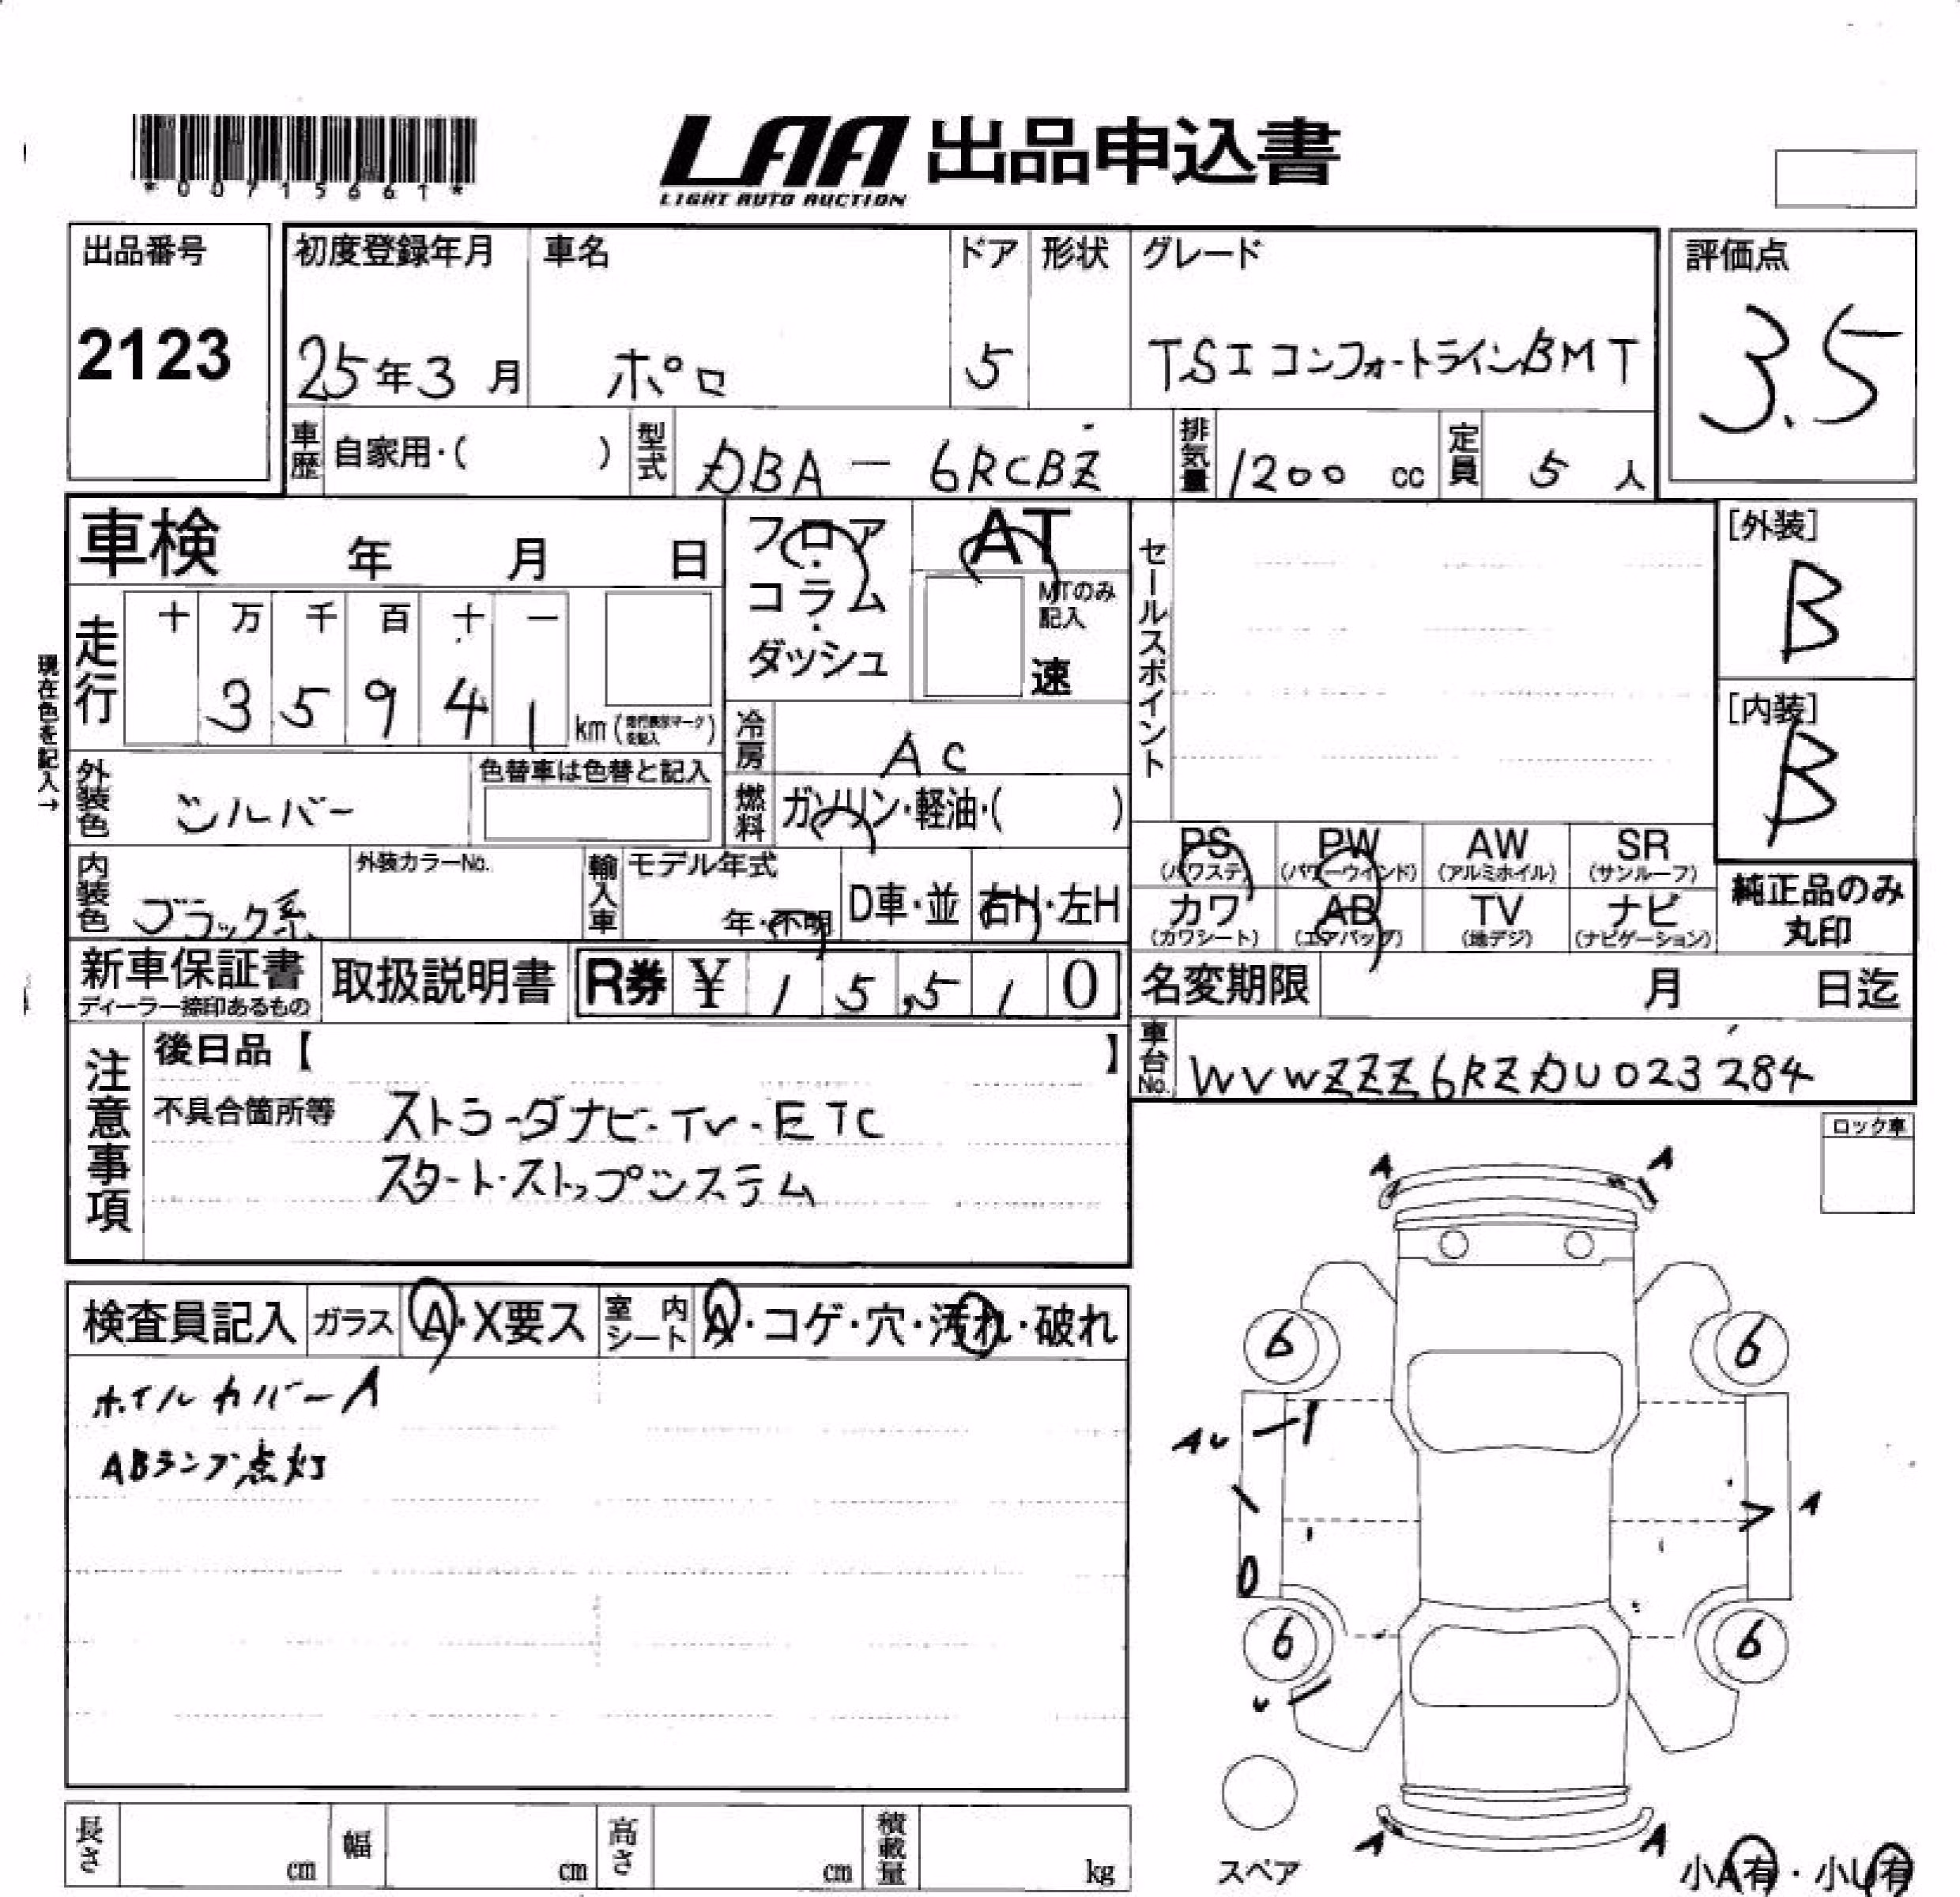 *00715661*
LAA 出品申込書
LIGHT AUTO AUCTION
出品番号
2123
初度登録年月
25年3月
車名
ポロ
ドア
5
形状
グレード
TSIコンフォートラインBMT
評価点
3.5
車歴 自家用・( )
型式 DBA-6RCBZ
排気量 1200 cc
定員 5 人
車検 年 月 日
フロア・コラム・ダッシュ
AT
MTのみ記入
速
セールスポイント
[外装]
B
[内装]
B
現在色を記入→
走行
十 万 千 百 十 一
3 5 9 4 1
km (走行表示マークを記入)
冷房 AC
外装色 シルバー
色替車は色替と記入
燃料 ガソリン・軽油・( )
PS (パワステ)
PW (パワーウインド)
AW (アルミホイル)
SR (サンルーフ)
内装色 ブラック系
外装カラーNo.
輸入車
モデル年式
年・不明
D車・並
右H・左H
カワ (カワシート)
AB (エアバッグ)
TV (地デジ)
ナビ (ナビゲーション)
純正品のみ丸印
新車保証書
ディーラー捺印あるもの
取扱説明書
R券 ¥ 15,510
名変期限 月 日迄
注意事項
後日品【 】
車台No. WVWZZZ6RZDU023284
不具合箇所等 ストラーダナビ・TV・ETC
スタート・ストップシステム
ロック車
A A
検査員記入
ガラス A・X要ス
室内シート A・コゲ・穴・汚れ・破れ
6 6
ホイルカバーA
AU
ABランプ点灯
A
6 6
U
長さ cm
幅 cm
高さ cm
積載量 kg
スペア
A A
小A有・小U有